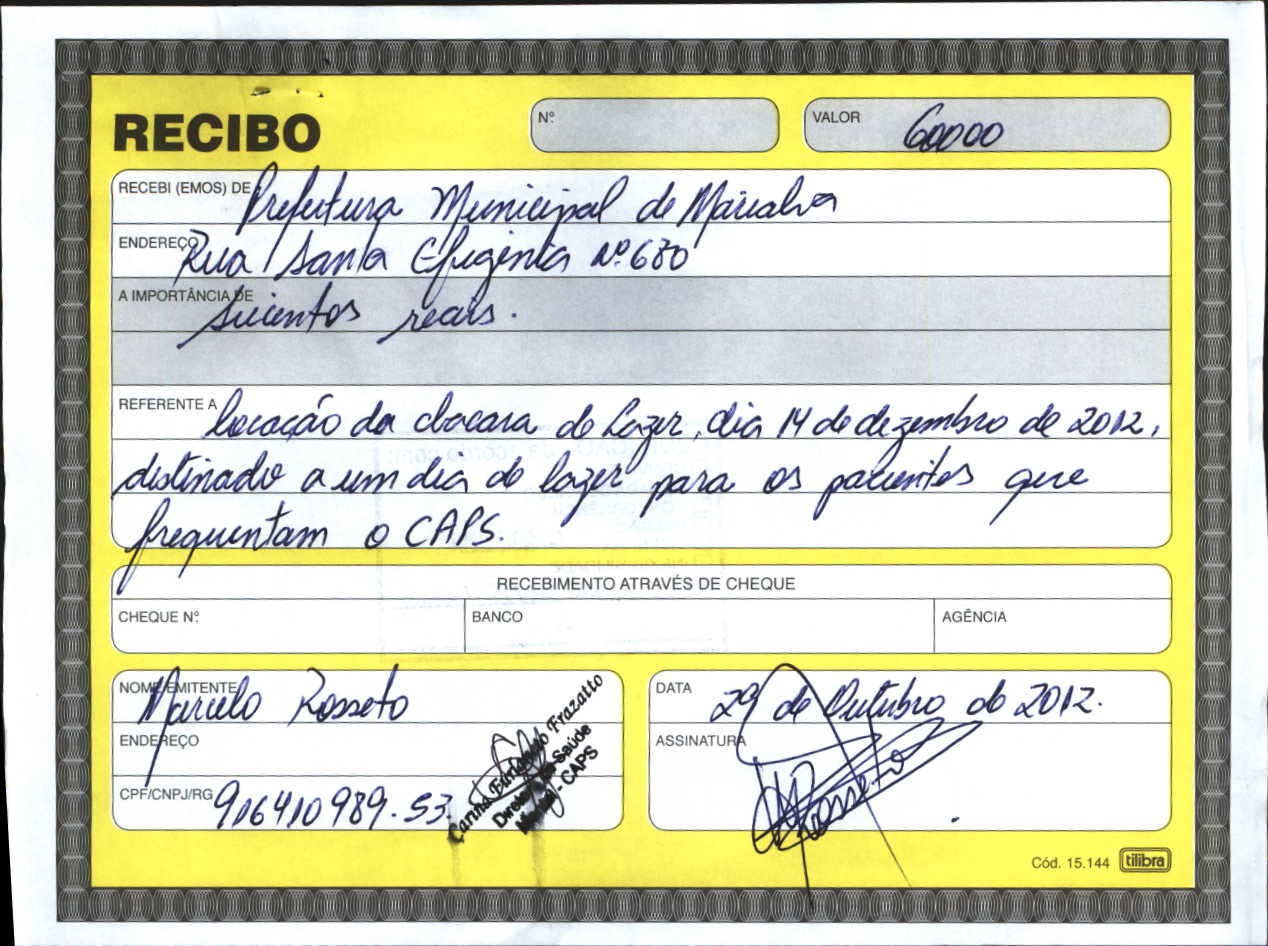 RECIBO
Nº
VALOR 60000
RECEBI (EMOS) DE Prefeitura Municipal de Marialva
ENDEREÇO Rua Santa Efigênia Nº 680
A IMPORTÂNCIA DE seicentos reais.
REFERENTE A locação da chacara de Lazer, dia 14 de dezembro de 2012,
destinado a um dia de lazer para os pacientes que
frequentam o CAPS.
RECEBIMENTO ATRAVÉS DE CHEQUE
CHEQUE Nº
BANCO
AGÊNCIA
NOME EMITENTE Marcelo Rosseto
DATA 29 de Outubro de 2012.
ENDEREÇO
ASSINATURA Rosseto
CPF/CNPJ/RG 916410989-53
Frazatto
Saúde
- CAPS
Cód. 15.144 tilibra